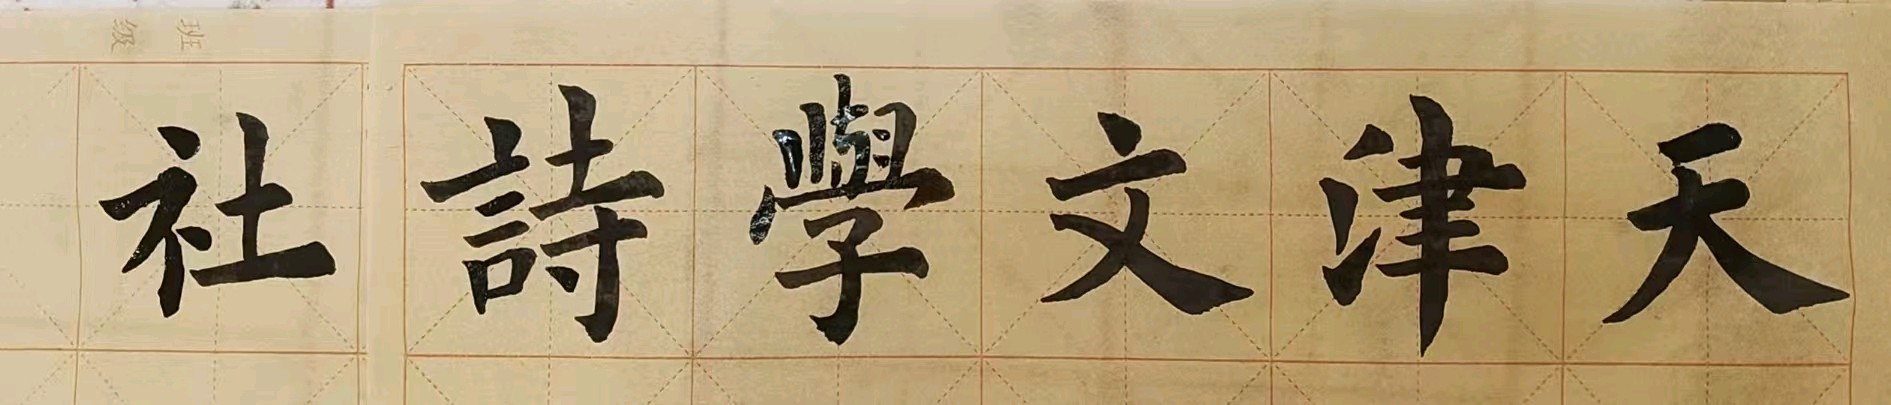 天津文學詩社
班级